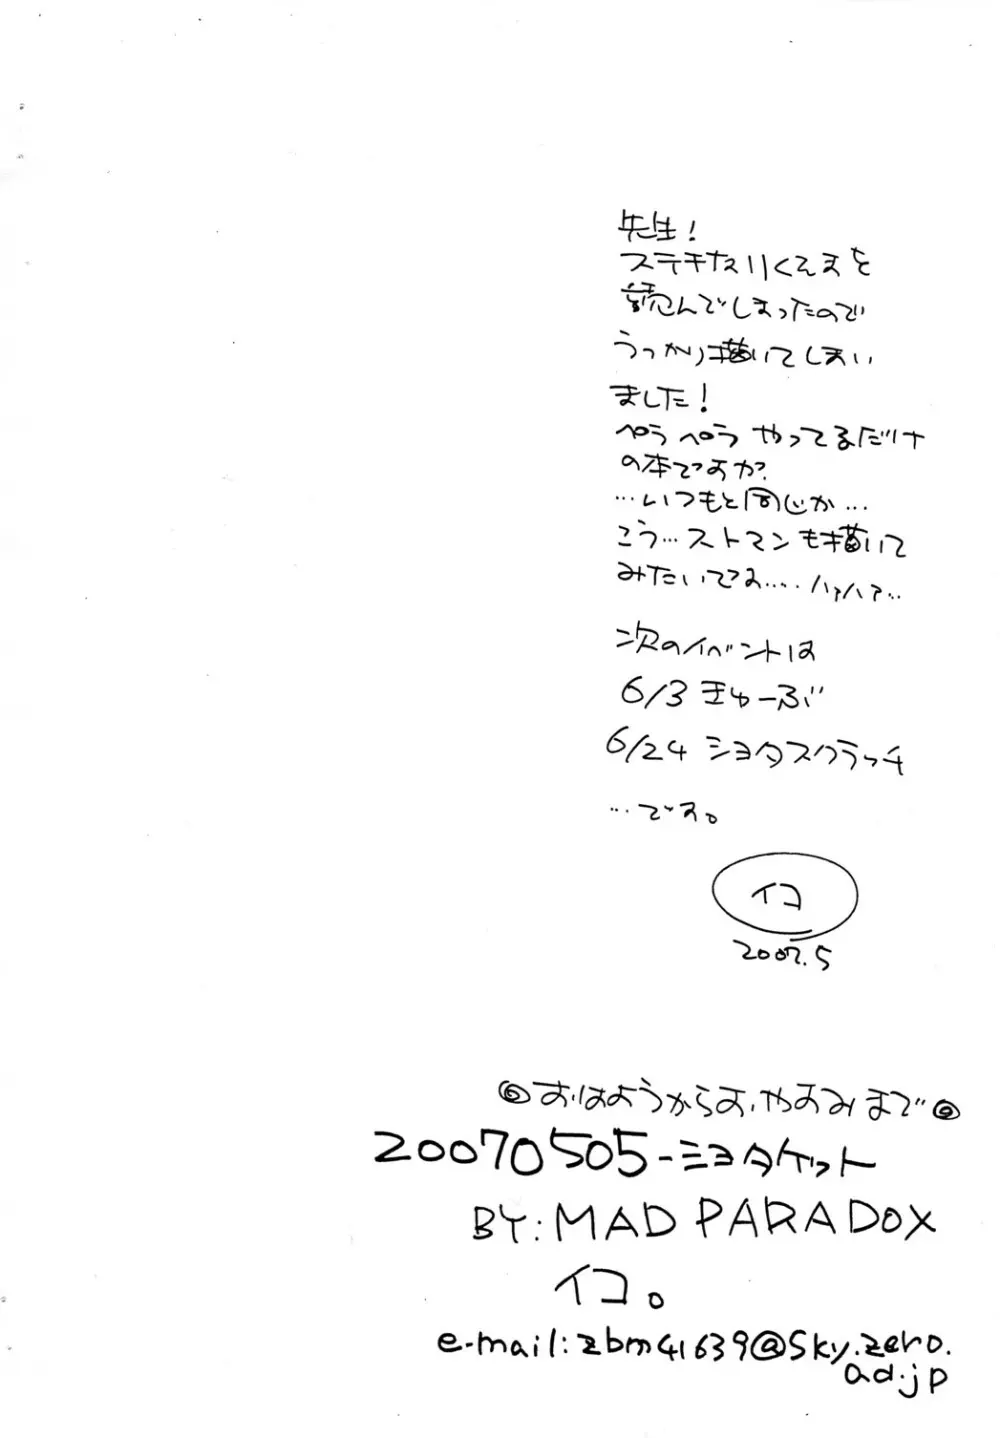 先生!
ステキなりくえすを
読んでしまったので
うっかり描いてしまい
ました!
ペラペラ やってるだけ
の本ですか?
…いつもと同じか…
こう…ストマンも描いて
みたいでつね…. ハァハァ…
次のイベントは
6/3 きゅーぶ
6/24 ショタスクラッチ
…です。
イコ
2007.5
◎おはようからおやすみまで◎
20070505-ショタケット
BY:MAD PARADOX
イコ。
e-mail:zbm41639@sky.zero.
ad.jp